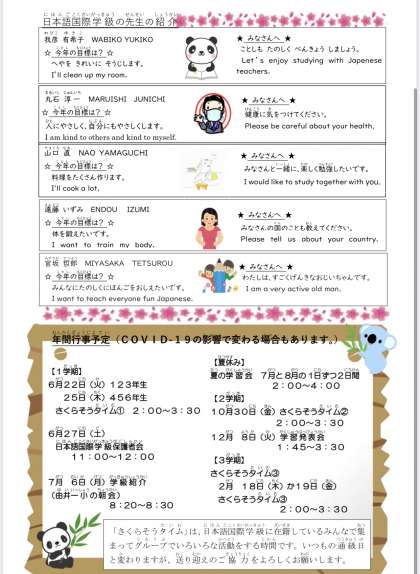 日本語国際学級の先生の紹介
我彦 有希子 WABIKO YUKIKO
☆ 今年の目標は? ☆
へやを きれいに そうじします。
I'll clean up my room.
★ みなさんへ ★
ことしも たのしく べんきょう しましょう。
Let's enjoy studying with Japanese
teachers.
丸石 淳一 MARUISHI JUNICHI
☆ 今年の目標は? ☆
人にやさしく、自分にもやさしくします。
I am kind to others and kind to myself.
★ みなさんへ ★
健康に気をつけてください。
Please be careful about your health.
山口 直 NAO YAMAGUCHI
☆ 今年の目標は? ☆
料理をたくさん作ります。
I'll cook a lot.
★ みなさんへ ★
みなさんと一緒に、楽しく勉強したいです。
I would like to study together with you.
遠藤 いずみ ENDOU IZUMI
☆ 今年の目標は? ☆
体を鍛えたいです。
I want to train my body.
★ みなさんへ ★
みなさんの国のことも教えてください。
Please tell us about your country.
宮坂 哲郎 MIYASAKA TETSUROU
☆ 今年の目標は? ☆
みんなにたのしくにほんごをおしえたいです。
I want to teach everyone fun Japanese.
★ みなさんへ ★
わたしは、すごくげんきなおじいちゃんです。
I am a very active old man.
年間行事予定(COVID-19の影響で変わる場合もあります。)
【1学期】
6月22日(火)123年生
25日(木)456年生
さくらそうタイム① 2:00~3:30
6月27日(土)
日本語国際学級保護者会
11:00~12:00
7月 6日(月)学級紹介
(由井一小の朝会)
8:20~8:30
【夏休み】
夏の学習会 7月と8月の1日ずつ2日間
2:00~4:00
【2学期】
10月30日(金)さくらそうタイム②
2:00~3:30
12月 8日(火)学習発表会
1:45~3:30
【3学期】
さくらそうタイム③
2月 18日(木)か19日(金)
さくらそうタイム③
2:00~3:30
「さくらそうタイム」は、日本語国際学級に在籍しているみんなで集
まってグループでいろいろな活動をする時間です。いつもの通級日
と変わりますが、送り迎えのご協力をよろしくお願いします。